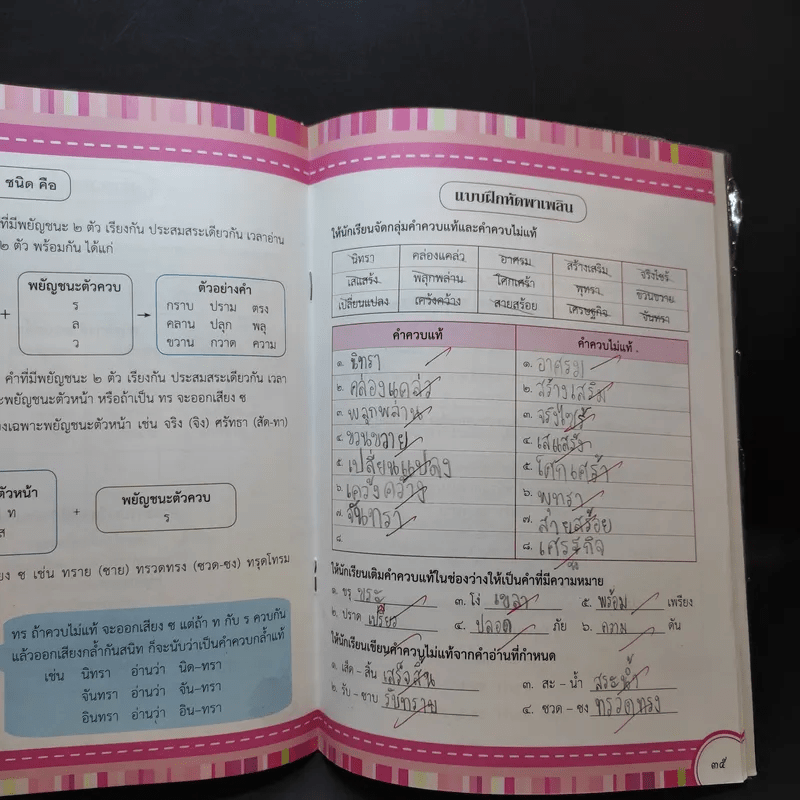 ชนิด คือ
ที่มีพยัญชนะ ๒ ตัว เรียงกัน ประสมสระเดียวกัน เวลาอ่าน
๒ ตัว พร้อมกัน ได้แก่
+ พยัญชนะตัวควบ
ร
ล
ว
ตัวอย่างคำ
กราบ ปราม ตรง
คลาน ปลุก พลุ
ขวาน กวาด ความ
คำที่มีพยัญชนะ ๒ ตัว เรียงกัน ประสมสระเดียวกัน เวลา
ะพยัญชนะตัวหน้า หรือถ้าเป็น ทร จะออกเสียง ซ
งเฉพาะพยัญชนะตัวหน้า เช่น จริง (จิง) ศรัทธา (สัด-ทา)
ตัวหน้า
ท
ส
+
พยัญชนะตัวควบ
ร
ยง ซ เช่น ทราย (ซาย) ทรวดทรง (ซวด-ซง) ทรุดโทรม
ทร ถ้าควบไม่แท้ จะออกเสียง ซ แต่ถ้า ท กับ ร ควบกัน
แล้วออกเสียงกล้ำกันสนิท ก็จะนับว่าเป็นคำควบกล้ำแท้
เช่น นิทรา อ่านว่า นิด-ทรา
จันทรา อ่านว่า จัน-ทรา
อินทรา อ่านว่า อิน-ทรา
แบบฝึกหัดพาเพลิน
ให้นักเรียนจัดกลุ่มคำควบแท้และคำควบไม่แท้
นิทรา คล่องแคล่ว อาศรม สร้างเสริม จริงไซร้
เสแสร้ง พลุกพล่าน โศกเศร้า พุทรา ขวนขวาย
เปลี่ยนแปลง เคว้งคว้าง สายสร้อย เศรษฐกิจ จันทรา
คำควบแท้
๑. นิทรา
๒. คล่องแคล่ว
๓. พลุกพล่าน
๔. ขวนขวาย
๕. เปลี่ยนแปลง
๖. เคว้งคว้าง
๗. จันทรา
๘.
คำควบไม่แท้
๑. อาศรม
๒. สร้างเสริม
๓. จริงไซร้
๔. เสแสร้ง
๕. โศกเศร้า
๖. พุทรา
๗. สายสร้อย
๘. เศรฐกิจ
ให้นักเรียนเติมคำควบแท้ในช่องว่างให้เป็นคำที่มีความหมาย
๑. ขรุ ขระ ๓. โง่ เขลา ๕. พร้อม เพรียง
๒. ปราด เปรียว ๔. ปลอด ภัย ๖. ความ ดัน
ให้นักเรียนเขียนคำควบไม่แท้จากคำอ่านที่กำหนด
๑. เส็ด - สิ้น เสร็จสิ้น ๓. สะ - น้ำ สระน้ำ
๒. รับ - ซาบ รับทราบ ๔. ซวด - ซง ทรวดทรง
๓๕